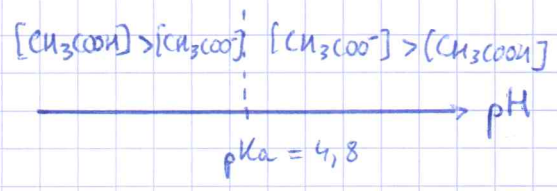 [CH₃COOH]>[CH₃COO⁻] [CH₃COO⁻]>[CH₃COOH]
pH
pKa = 4,8